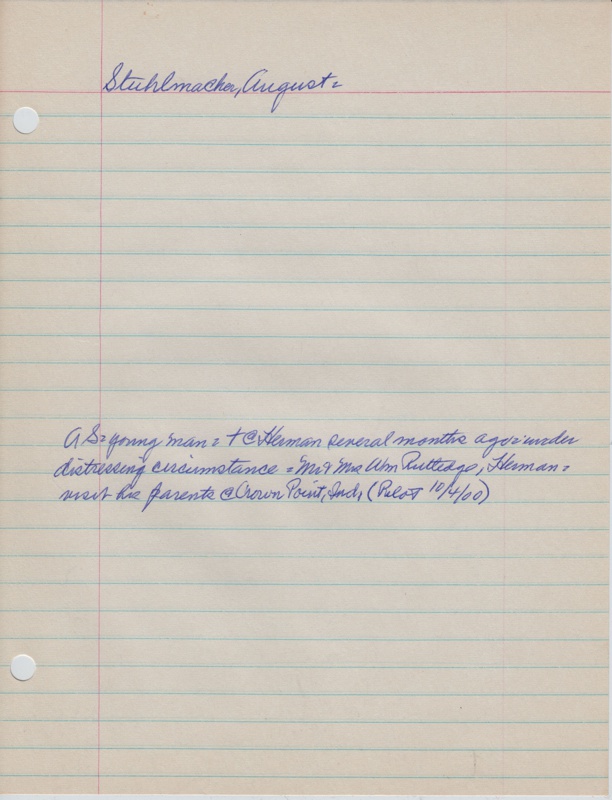 Stuhlmacher, August =
A S = young man = † @ Herman several months ago = under
distressing circumstance = Mr & Mrs Wm Rutledge, Herman =
visit his parents @ Crown Point, Ind, (Pilot 10/4/00)